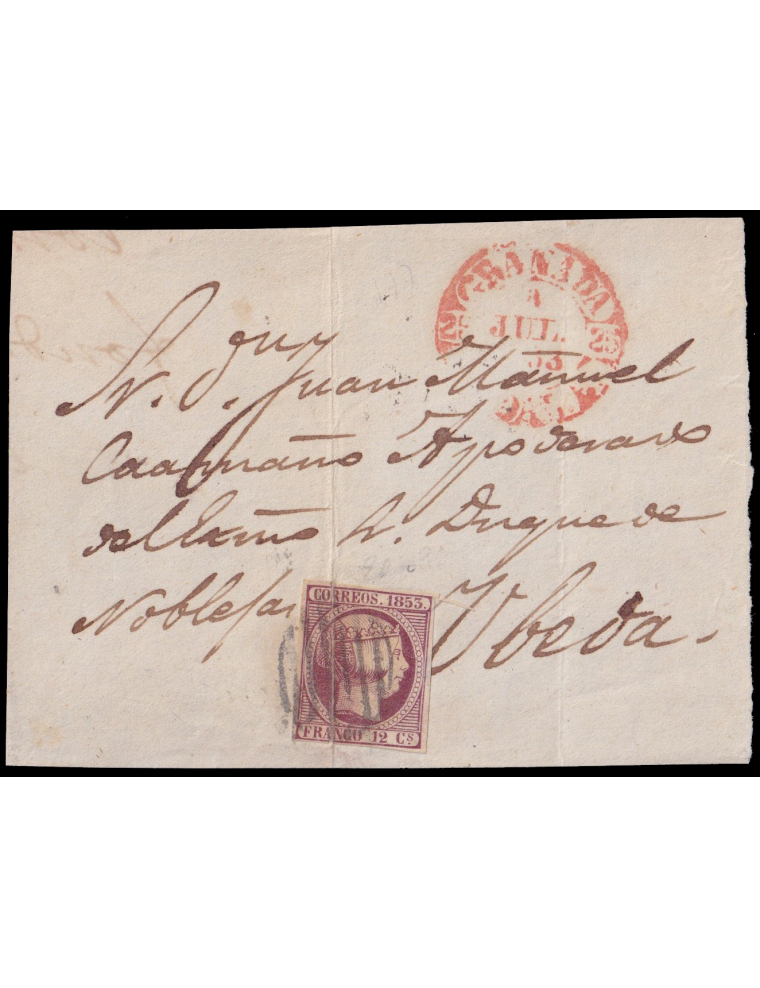 GRANADA
JUL.
53
S.r D.n Juan Manuel
Caamaño Apoderado
del Exmo Sr. Duque de
Noblejas
Ubeda.
CORREOS. 1853.
FRANCO 12 Cs